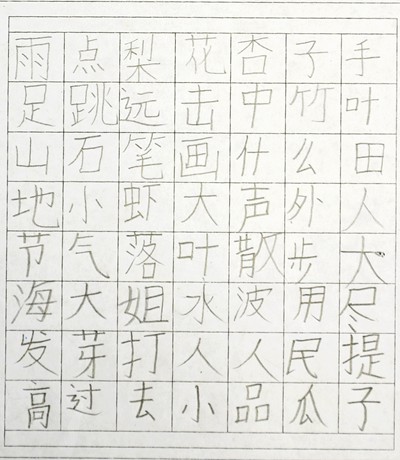 雨点梨花杏子手
足跳远击中竹叶
山石笔画什么田
地小虾大声外人
节气落叶散步大
海大姐水波用尽
发芽打人人民提
高过去小品瓜子